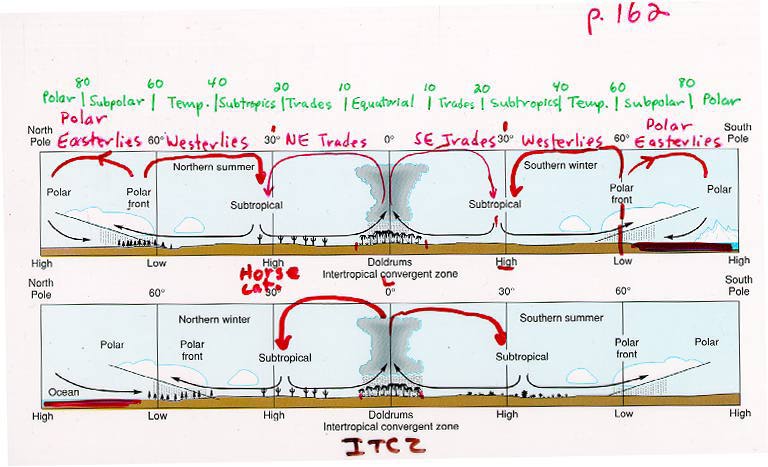 p. 162
80 60 40 20 10 10 20 40 60 80
Polar | Subpolar | Temp. | Subtropics | Trades | Equatorial | Trades | Subtropics | Temp. | Subpolar | Polar
Polar Easterlies Westerlies NE Trades SE Trades Westerlies Polar Easterlies
North Pole 60° 30° 0° 30° 60° South Pole
Northern summer Southern winter
Polar Polar front Subtropical Subtropical Polar front Polar
High Low High Doldrums High Low High
Intertropical convergent zone
Horse Lat. L
North Pole 60° 30° 0° 30° 60° South Pole
Northern winter Southern summer
Polar Polar front Subtropical Subtropical Polar front Polar
Ocean
High Low High Doldrums High Low High
Intertropical convergent zone
ITCZ